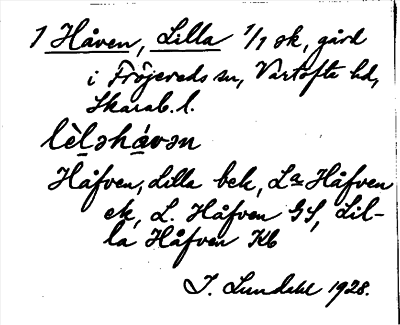 1 Håven, Lilla 1/1 sk, gård
i Fröjereds sn, Vartofte hd,
Skarab. l.
lèləhávən
Håfven, Lilla bek, La Håfven
ek, L. Håfven GS, Lil-
la Håfven Kb
I. Lundahl 1928.